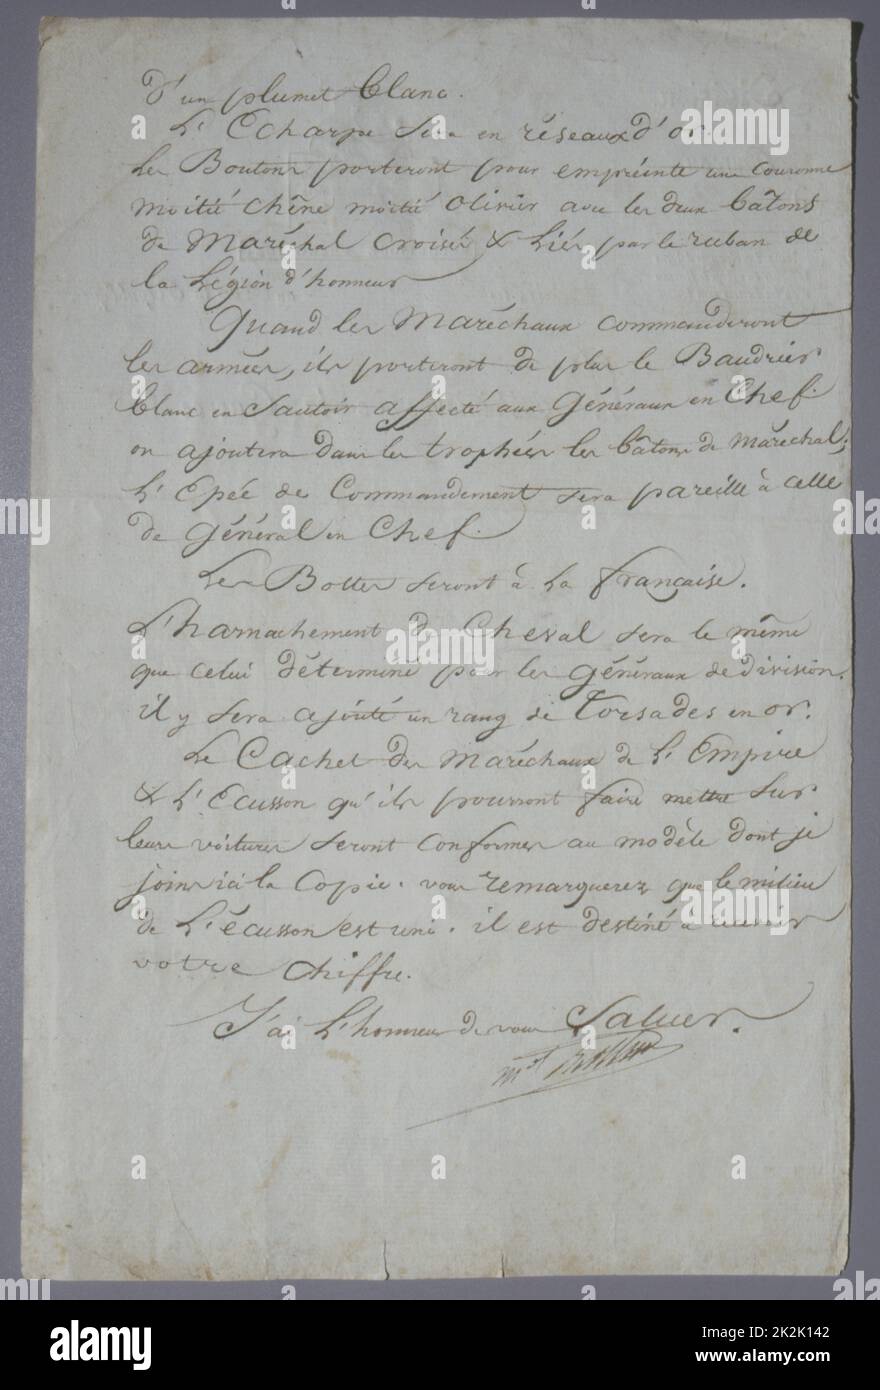 D'un plumet blanc.
L'Echarpe sera en réseaux d'or.
Les Boutons porteront pour empreinte une Couronne
moitié chêne moitié olivier avec les deux bâtons
de Maréchal croisés & liés par le ruban de
la Légion d'honneur
Quand les Maréchaux commanderont
les armées, ils porteront de plus le Baudrier
blanc en Sautoir affecté aux Généraux en Chef.
on ajoutera dans les trophées les bâtons de Maréchal;
L'Epée de Commandement sera pareille à celle
de Général en Chef.
Les Bottes seront à la française.
L'harnachement de Cheval sera le même
que celui déterminé pour les Généraux de division.
il y sera ajouté un rang de Torsades en or.
Le Cachet des Maréchaux de L'Empire
& L'Ecusson qu'ils pourront faire mettre sur
leurs voitures seront conformes au modèle dont je
joins ici la Copie. vous remarquerez que le milieu
de L'écusson est uni. il est destiné à recevoir
votre chiffre.
J'ai L'honneur de vous Saluer.
Mal
alamy
a
Image ID: 2K2K142
www.alamy.com